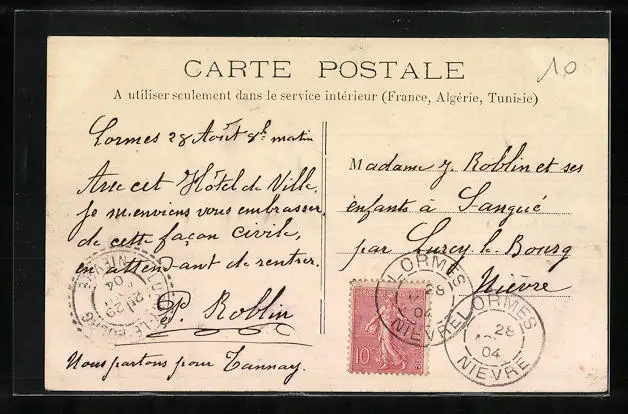 CARTE POSTALE
10
A utiliser seulement dans le service intérieur (France, Algérie, Tunisie)
Lormes 28 Août 8h matin
Avec cet Hôtel de Ville,
je m'enviens vous embrasser,
de cette façon civile,
en attendant de rentrer.
P. Roblin
Nous partons pour Tannay.
Madame J. Roblin et ses
enfants à Sangué
par Lurcy-le-Bourg
Nièvre
LORMES
28
04
NIÈVRE
LORMES
28
04
NIÈVRE
10c
LURCY-LE-BOURG
29
04
NIÈVRE